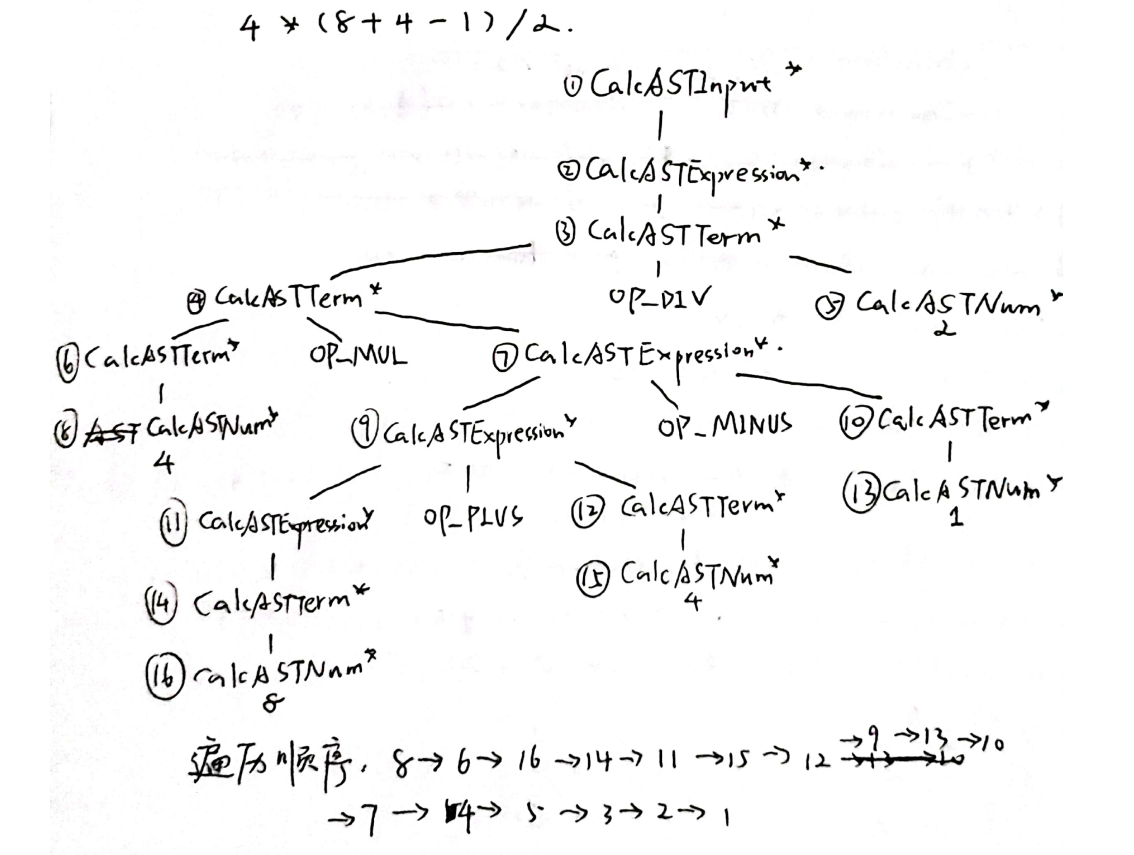 4 * (8+4-1)/2.
① CalcASTInput *
② CalcASTExpression*.
③ CalcASTTerm *
④ CalcASTTerm*
OP_DIV
⑤ CalcASTNum*
2
⑥ CalcASTTerm*
OP_MUL
⑦ CalcASTExpression*.
⑧ AST CalcASTNum*
4
⑨ CalcASTExpression*
OP_MINUS
⑩ CalcASTTerm*
⑪ CalcASTExpression*
OP_PLUS
⑫ CalcASTTerm*
⑬ CalcASTNum*
1
⑭ CalcASTTerm*
⑮ CalcASTNum*
4
⑯ CalcASTNum*
8
遍历顺序. 8→6→16→14→11→15→12→9→13→10
→7→4→5→3→2→1